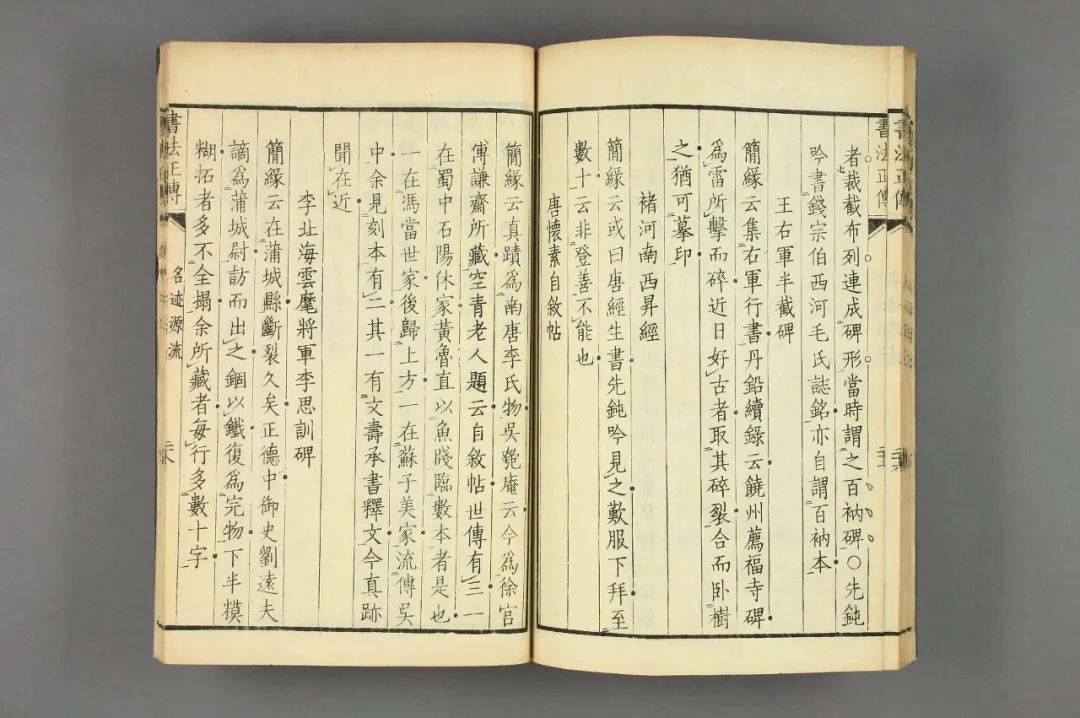 書法正傳
者裁截布列連成碑形當時謂之百衲碑○先鈍
吟書錢宗伯西河毛氏誌銘亦自謂百衲本
王右軍半截碑
簡緣云集右軍行書丹鉛續錄云饒州薦福寺碑
為雷所擊而碎近日好古者取其碎裂合而臥樹
之猶可摹印
褚河南西昇經
簡緣云或曰唐經生書先鈍吟見之歎服下拜至
數十云非登善不能也
唐懷素自敘帖
簡緣云真蹟為南唐李氏物吳匏庵云今為徐宮
傅謙齋所藏空青老人題云自敘帖世傳有三一
在蜀中石陽休家黃魯直以魚牋臨數本者是也
一在馮當世家後歸上方一在蘇子美家流傳吳
中余見刻本有二其一有文壽承書釋文今真跡
聞在近
李北海雲麾將軍李思訓碑
簡緣云在蒲城縣斷裂久矣正德中御史劉遠夫
謫為蒲城尉訪而出之錮以鐵復為完物下半模
糊拓者多不全搨余所藏者每行多數十字
書法正傳
名迹源流